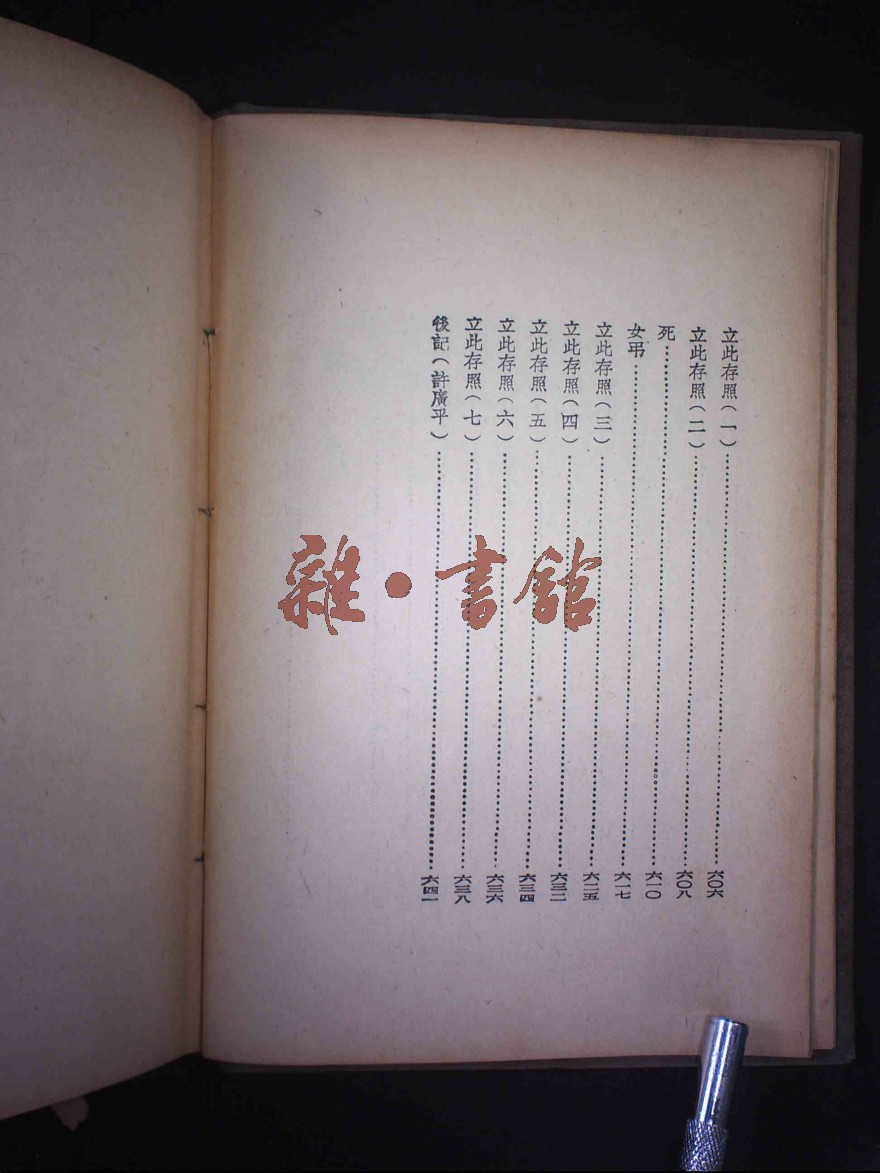 立此存照（一）……六〇六
立此存照（二）……六〇八
死……六一〇
女弔……六一七
立此存照（三）……六二五
立此存照（四）……六三二
立此存照（五）……六三四
立此存照（六）……六三六
立此存照（七）……六三八
後記（許廣平）……六四一
雜·書館